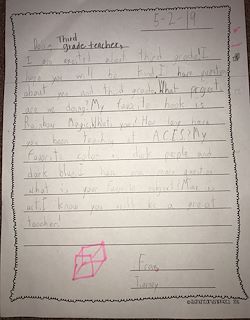 5-2-19
Dear Third
grade teacher,
I am excitet about third grade! I
hope you will be kind. I have question
about you and third grade. What project
are we doing? My favorite book is
Rainbow Magic. Whats yours? How long have
you been teaching at ACES? My
favorite color is dark people and
dark blue.
what is your favorite subject? Mine is
art. I know you will be a great
teacher!
From,